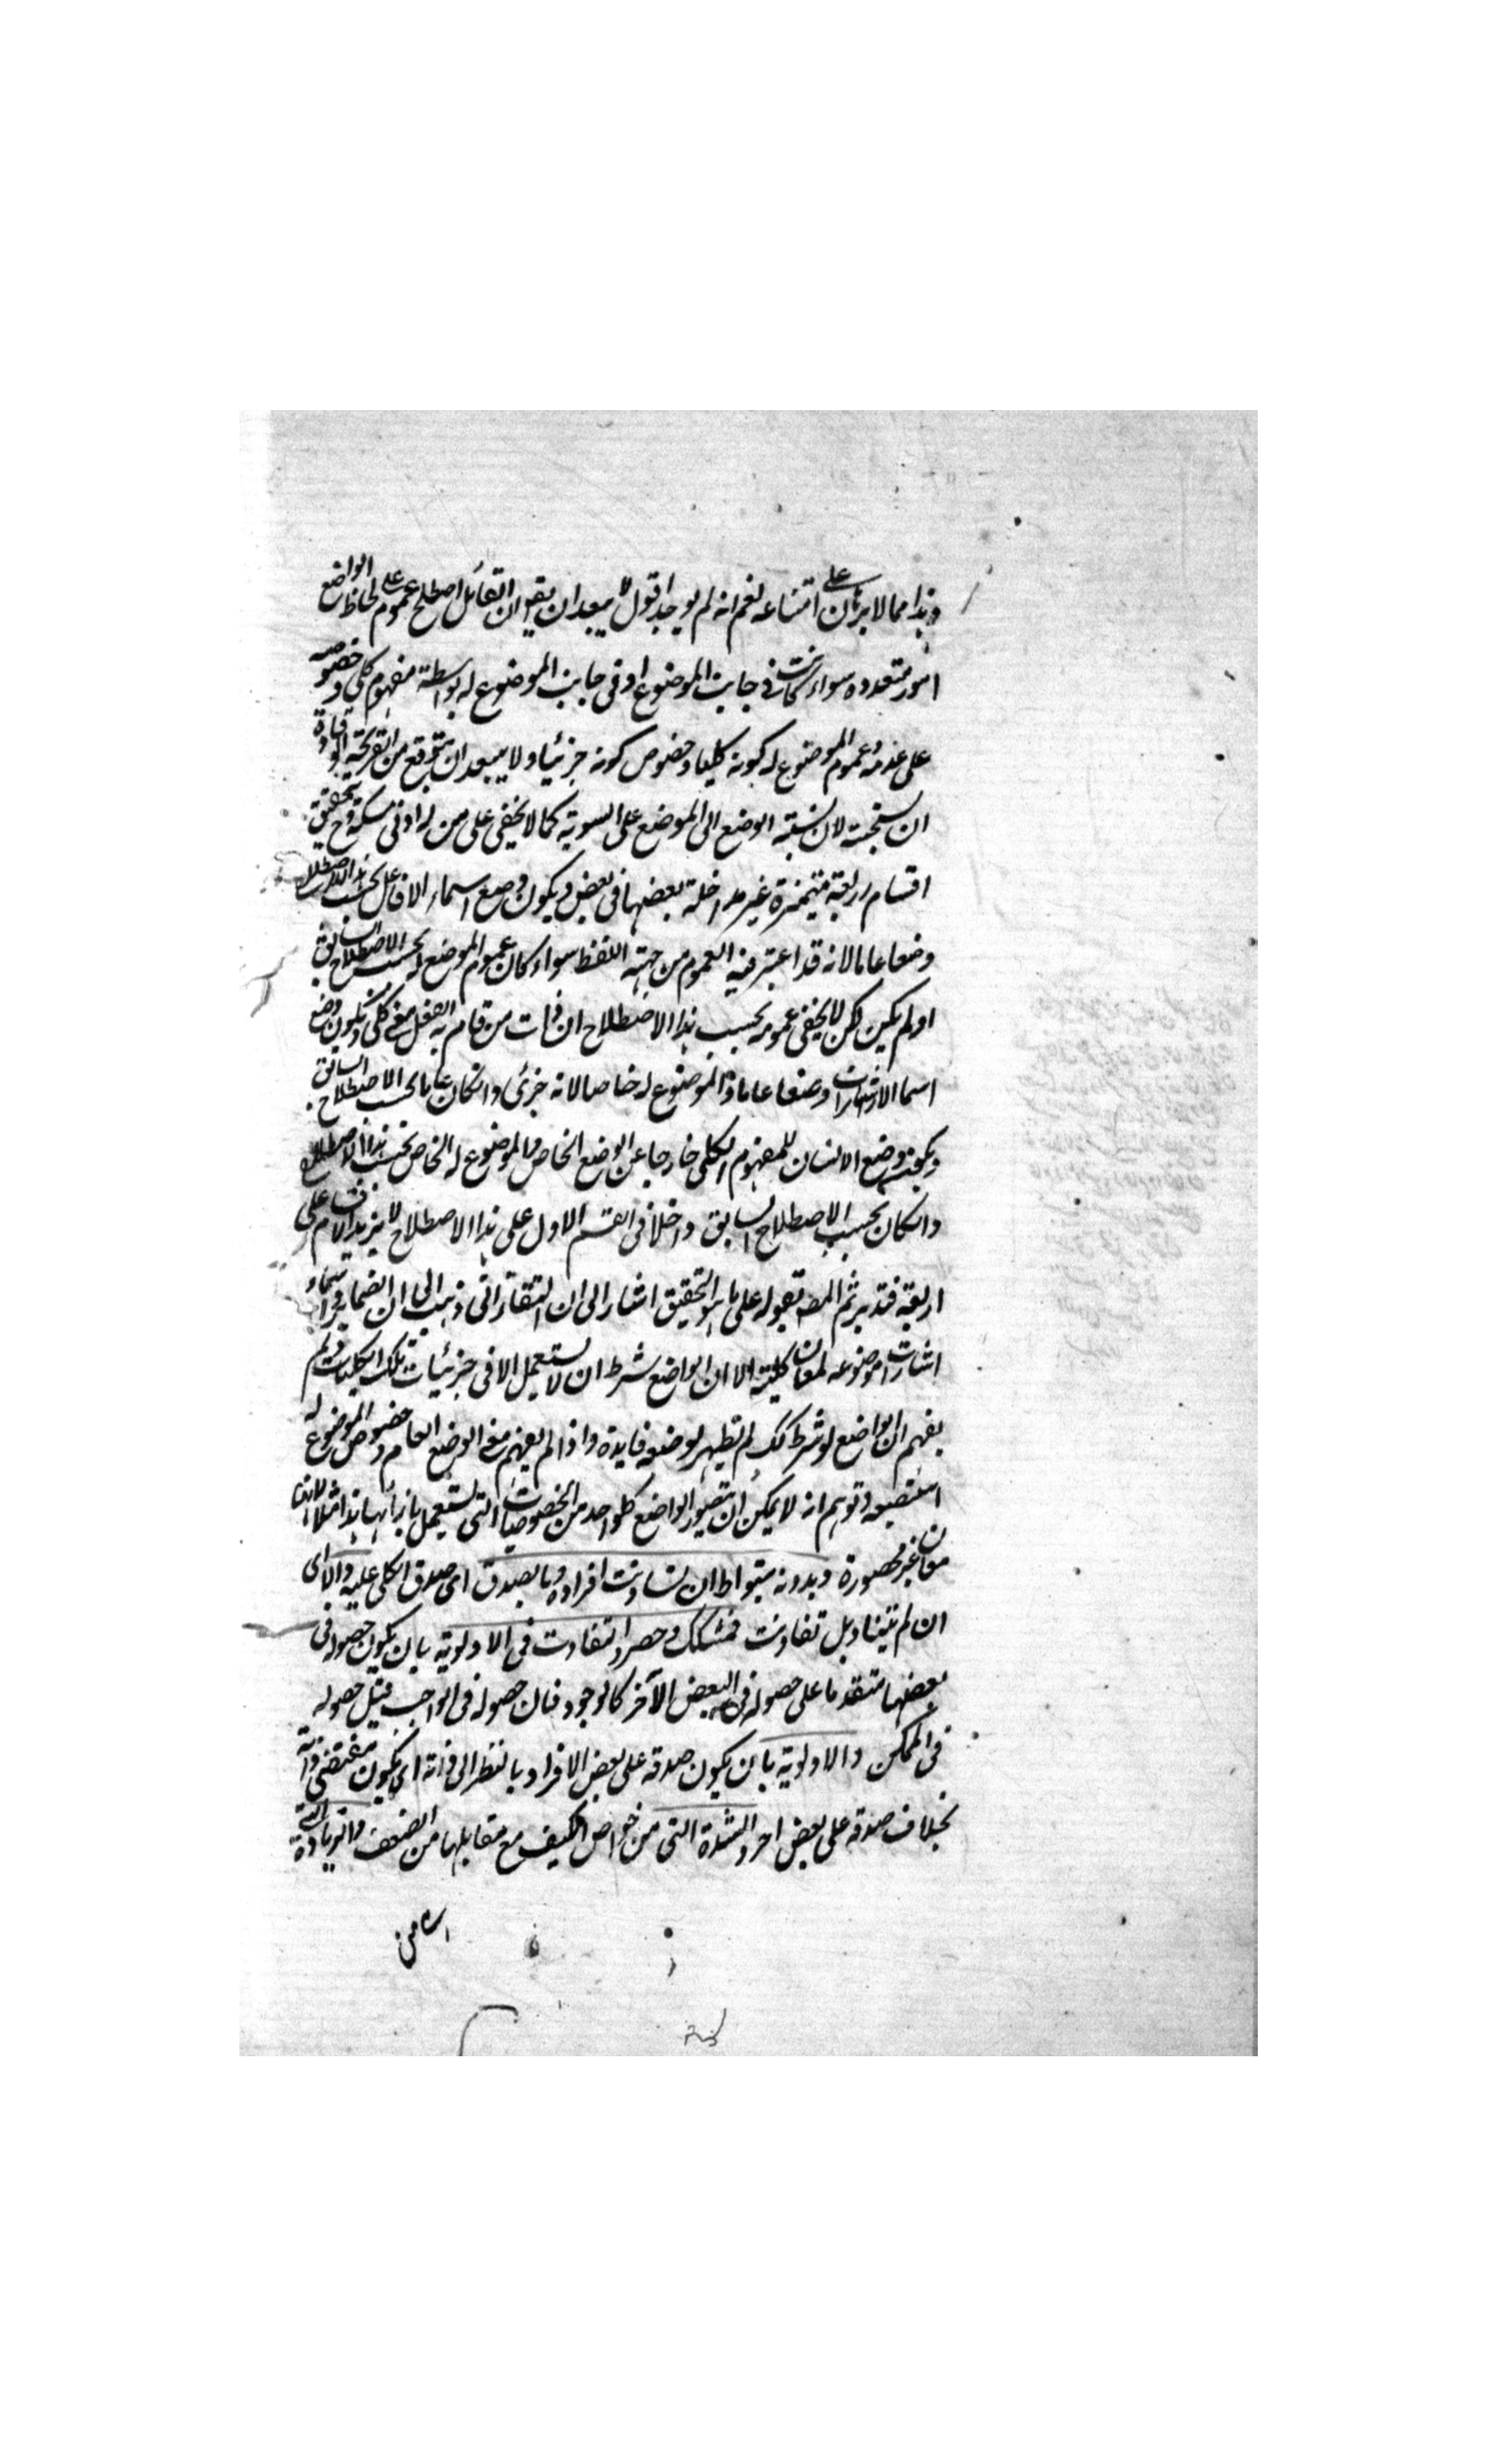 وهذا مما لا برهان على امتناعه نعم انه لم يوجد اقول لا يبعد ان يقو ان القائل اصطلح على عموم لحاظ الواضع
امور متعدده سواء كانت في جانب الموضوع او في جانب الموضوع له بواسطة مفهوم كلي وخصوصه
على عدمه وعموم الموضوع له كونه كليا وخصوص كونه جزئيا ولا يبعد ان يتوقع من القريحة الوقادة
ان نسبة الوضع الى الموضع على السوية كما لا يخفى على من له ادنى مسكة وح يتحقق
اقسام اربعة متميزة غير مداخلة بعضها في بعض ويكون وضع اسماء الافاعل بحسب هذا الاصطلاح
وضعا عاما لانه قد اعتبر فيه العموم من جهة اللفظ سواء كان عموم الموضع له بحسب الاصطلاح السابق
او لم يكن لكن لا يخفى عمومه بحسب هذا الاصطلاح ان ذات من قام به الفعل معنى كلي ويكون وضع
اسما الاشارات وضعا عاما والموضوع له خاصا لانه جزئي وانكان عاما بحسب الاصطلاح السابق
ويكون وضع الانسان للمفهوم الكلي خارجا عن الوضع الخاص والموضوع له الخاص بحسب هذا الاصطلاح
وانكان بحسب الاصطلاح السابق داخلا في القسم الاول على هذا الاصطلاح لا يزيد الاقسام على
اربعة فتدبر ثم المصه بقوله على ما هو التحقيق اشار الى ان التفتازاني ذهب الى ان الضماير واسماء
اشارات موضوعه لمعان كلية الا ان الواضع شرط ان لا يستعمل الا في جزئيات تلك الكليات ولم
يفهم ان الواضع لو شرط كك لم تظهر لوضعه فايدة واذا لم يفهم معنى الوضع العام وخصوص الموضوع له
استصعبه وتوهم انه لا يمكن ان يتصور الواضع كلواحد من الخصوصيات التي يستعمل بازائها هذا مثلا لانها
معان غير محصورة وبدونه متواط ان تساوت افراده وما يصدق اي صدق الكلي عليه والا اي
ان لم يتساو بل تفاوتت فمشكك وحصر والتفاوت في الاولوية بان يكون حصوله في
بعضها متقدما على حصوله في البعض الآخر كالوجود فان حصوله في الواجب قبل حصوله
في الممكن والاولوية بان يكون صدقه على بعض الافراد بالنظر الى ذاته اي يكون مقتضى ذاته
بخلاف صدقه على بعض اخر والشدة التي من خواص الكيف مع مقابلها من الضعف والزيادة التي